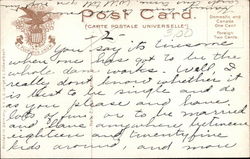 Post Card.
(CARTE POSTALE UNIVERSELLE)
Domestic and
Canada
One Cent
Foreign
Two Cents
2-
you say it tiresome
when one has got to be the
whole damn makes. Well I
really dont know whether it
is best to be single and do
as you please and have
lots of fun or to be married
and have anywhere between
eighteen and twenty five
kids around and more